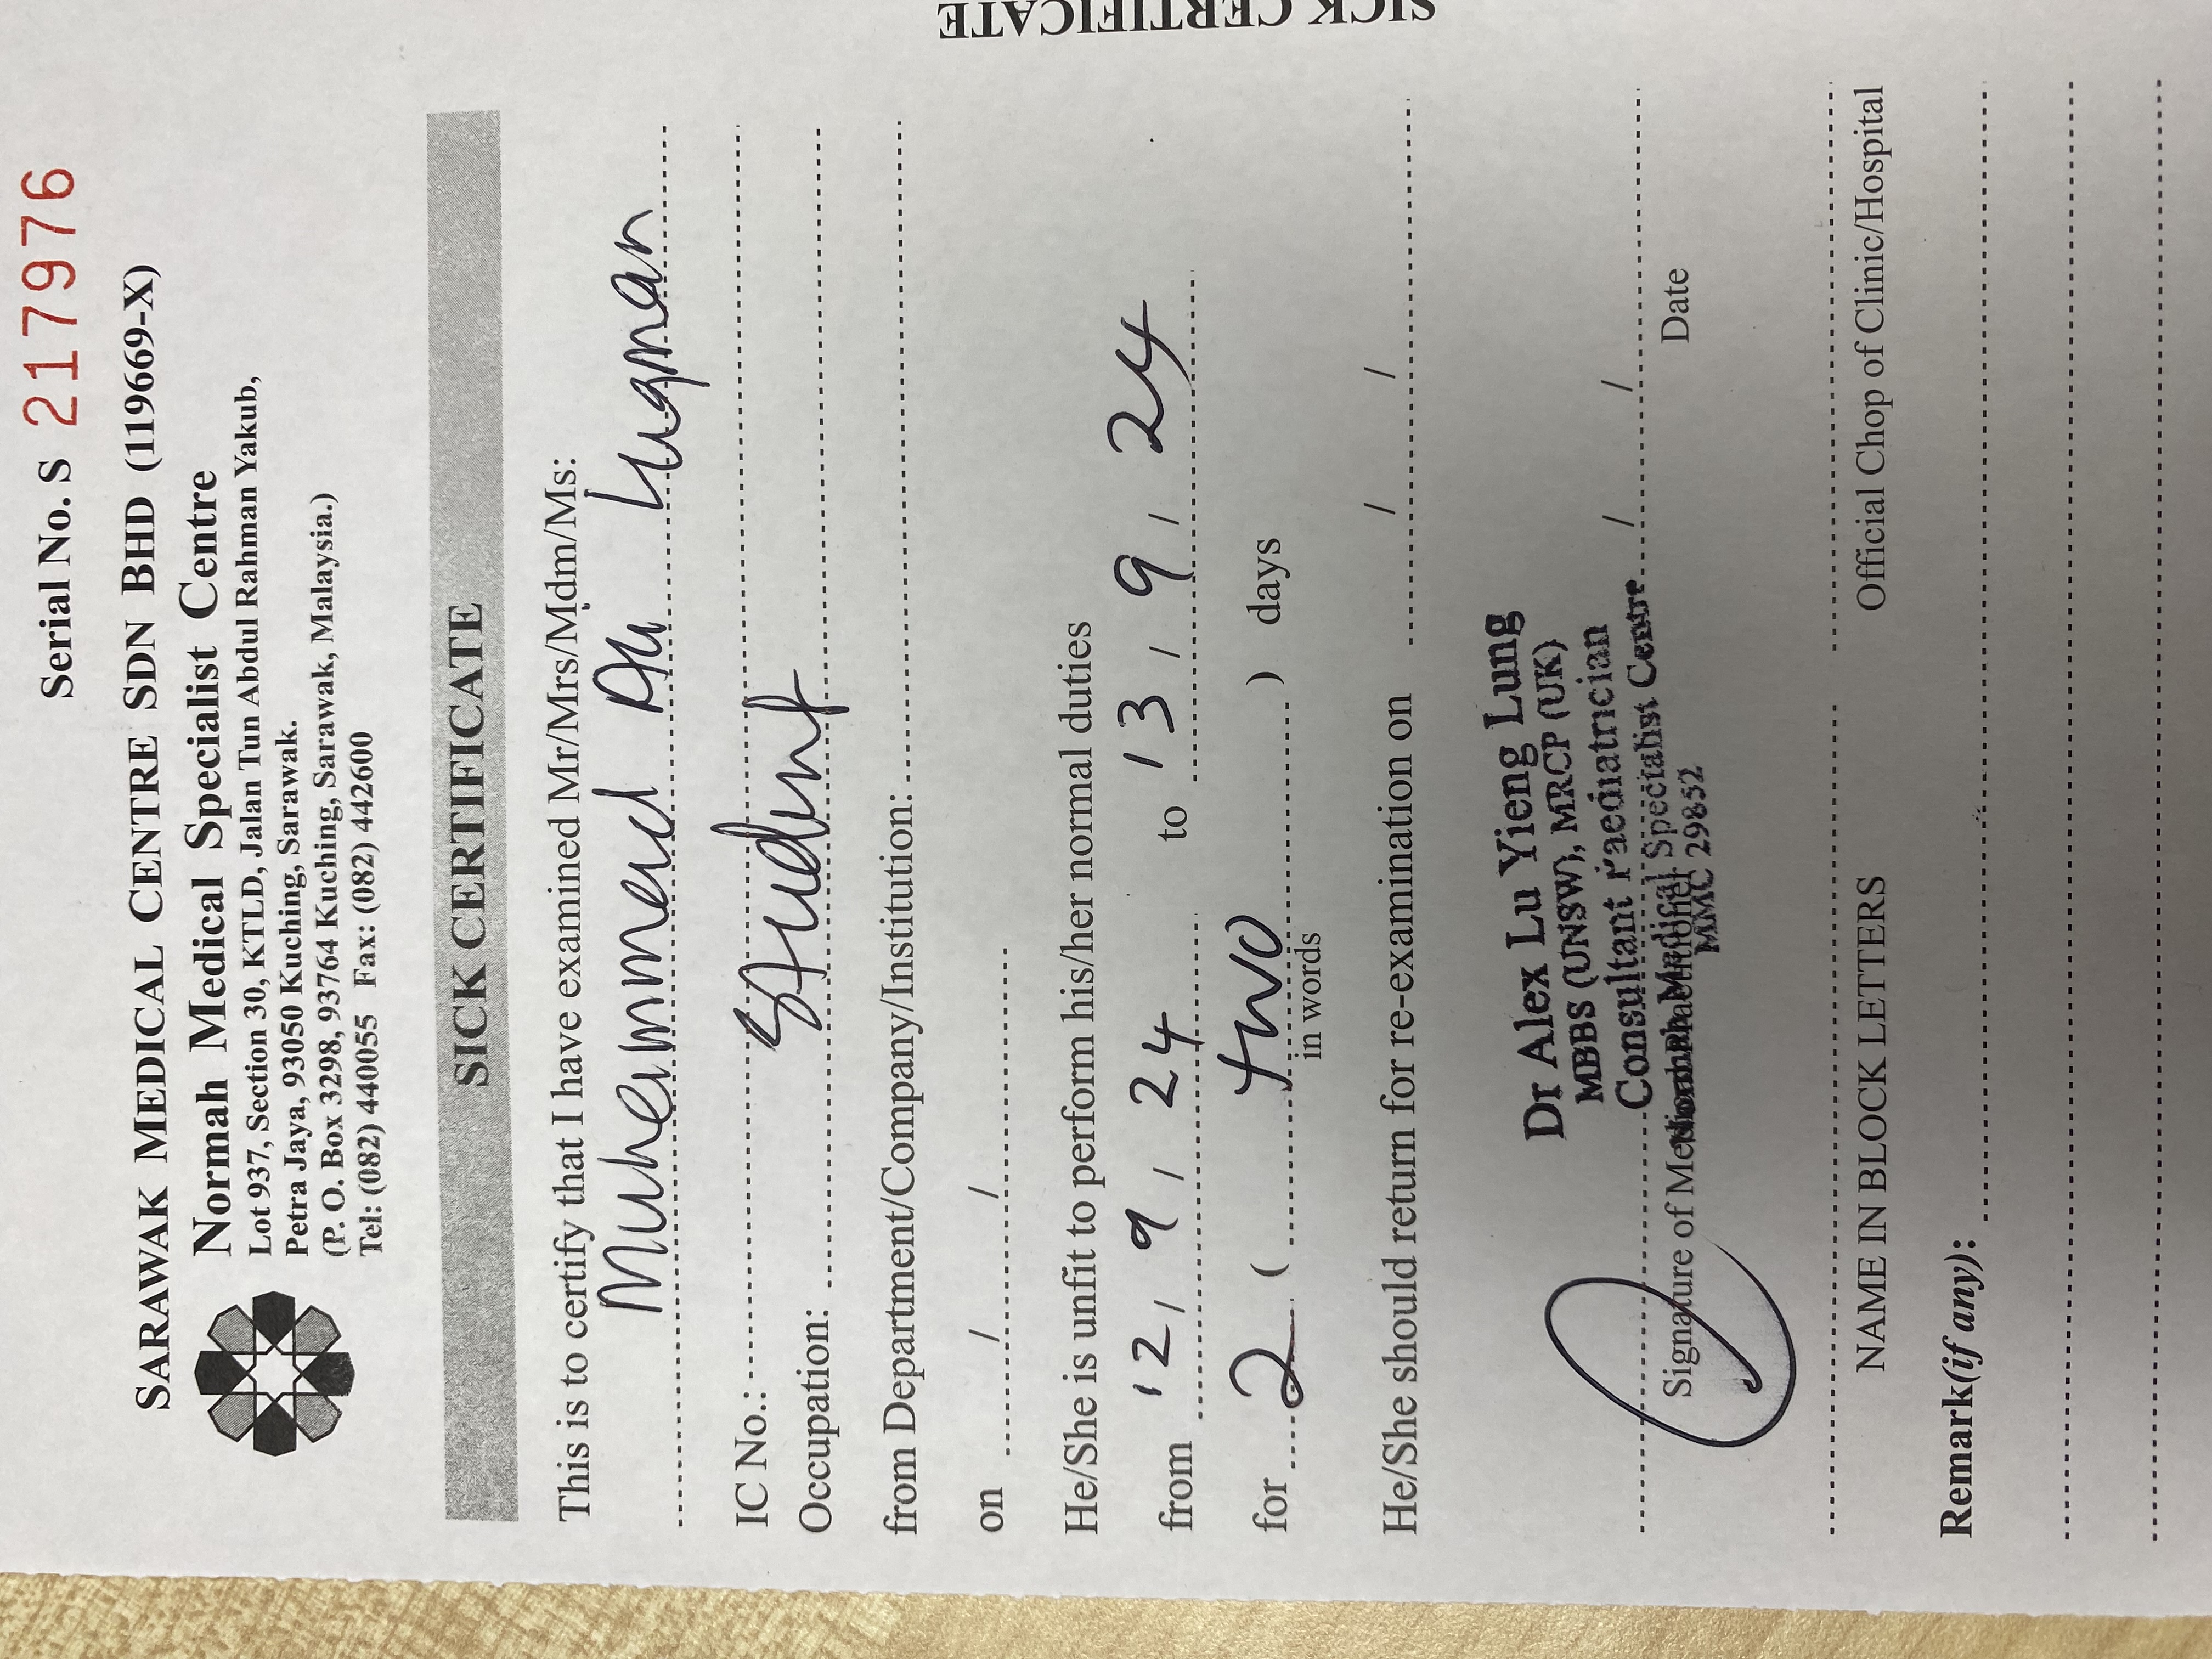 Serial No. S 217976
SARAWAK MEDICAL CENTRE SDN BHD (119669-X)
Normah Medical Specialist Centre
Lot 937, Section 30, KTLD, Jalan Tun Abdul Rahman Yakub,
Petra Jaya, 93050 Kuching, Sarawak.
(P. O. Box 3298, 93764 Kuching, Sarawak, Malaysia.)
Tel: (082) 440055 Fax: (082) 442600
SICK CERTIFICATE
This is to certify that I have examined Mr/Mrs/Mdm/Ms:
Muhammad Ali Luqman
IC No.:
Occupation: Student
from Department/Company/Institution:
on / /
He/She is unfit to perform his/her normal duties
from 12/ 9 / 24 to 13 / 9 / 24
for 2 ( two ) days
in words
He/She should return for re-examination on / /
Dr Alex Lu Yieng Lung
MBBS (UNSW), MRCP (UK)
Consultant Paediatrician
/ /
Normah Medical Specialist Centre
Signature of Medical Practitioner Date
MMC 29852
NAME IN BLOCK LETTERS Official Chop of Clinic/Hospital
Remark(if any):
SICK CERTIFICATE